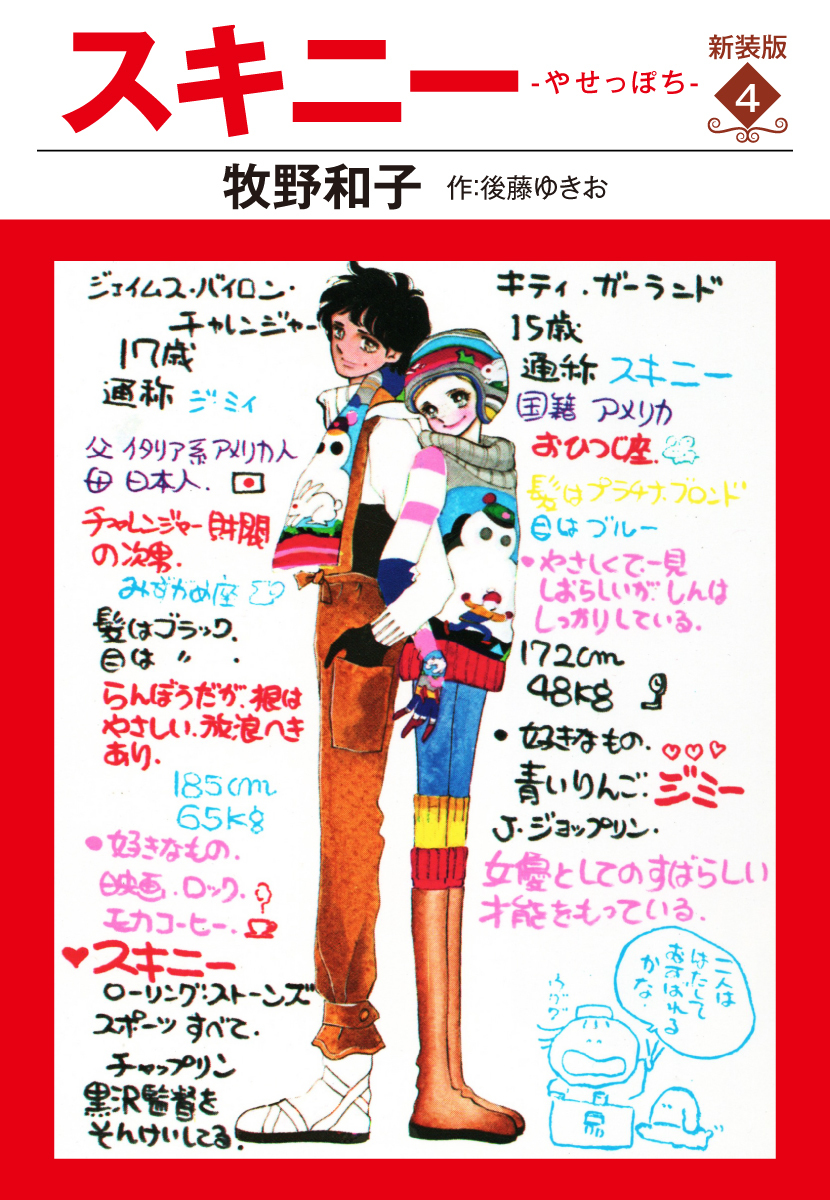 スキニー
-やせっぽち-
新装版
4
牧野和子
作:後藤ゆきお
ジェイムス・バイロン・
チャレンジャー
17歳
通称 ジミィ
父 イタリア系アメリカ人
母 日本人.
チャレンジャー財閥
の次男.
みずがめ座
髪はブラック.
目は 〃 .
らんぼうだが、根は
やさしい.放浪へき
あり.
185cm
65Kg
●好きなもの.
映画.ロック.
モカコーヒー.
♥スキニー
ローリング・ストーンズ
スポーツ すべて.
チャップリン
黒沢監督を
そんけいしてる.
キティ・ガーランド
15歳
通称 スキニー
国籍 アメリカ
おひつじ座.
髪はプラチナ.ブロンド
目はブルー
●やさしくて.一見
しおらしいが.しんは
しっかりしている.
172cm
48Kg
●好きなもの.♡♡♡
青いりんご.ジミー
J・ジョップリン.
女優としてのすばらしい
才能をもっている.
二人は
はたして
むすばれる
かな.